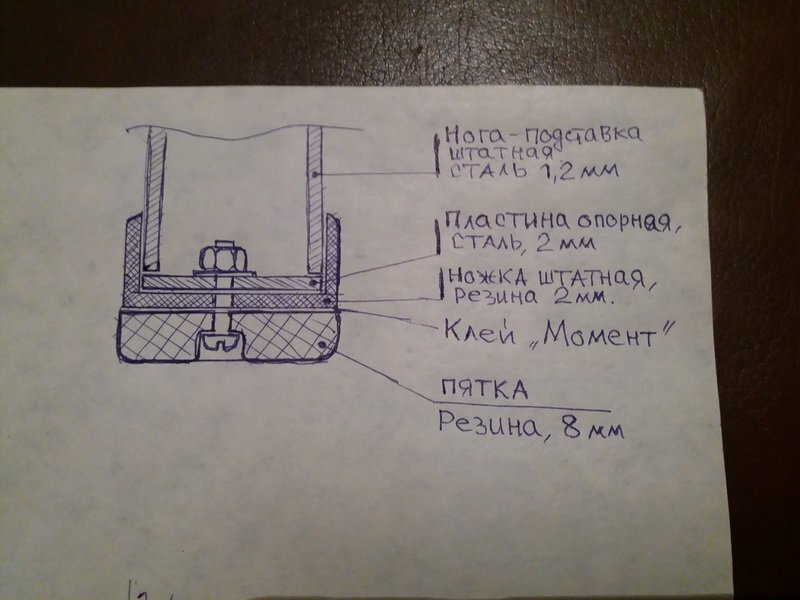 Нога-подставка
штатная
сталь 1,2 мм
Пластина опорная,
сталь, 2 мм
Ножка штатная,
резина 2мм.
Клей „Момент"
ПЯТКА
Резина, 8 мм